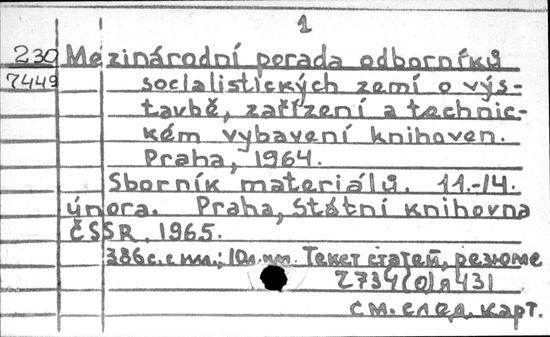 1
230 Mezinárodní porada odborníků
7449 socialistických zemí o výs-
tavbě, zařízení a technic-
kém vybavení knihoven.
Praha, 1964.
Sborník materiálů. 11.-14.
února. Praha, Státní knihovna
ČSSR, 1965.
386 с. с илл.; 10 л. илл. Текст статей, резюме
2734(0)я431
см. след. карт.